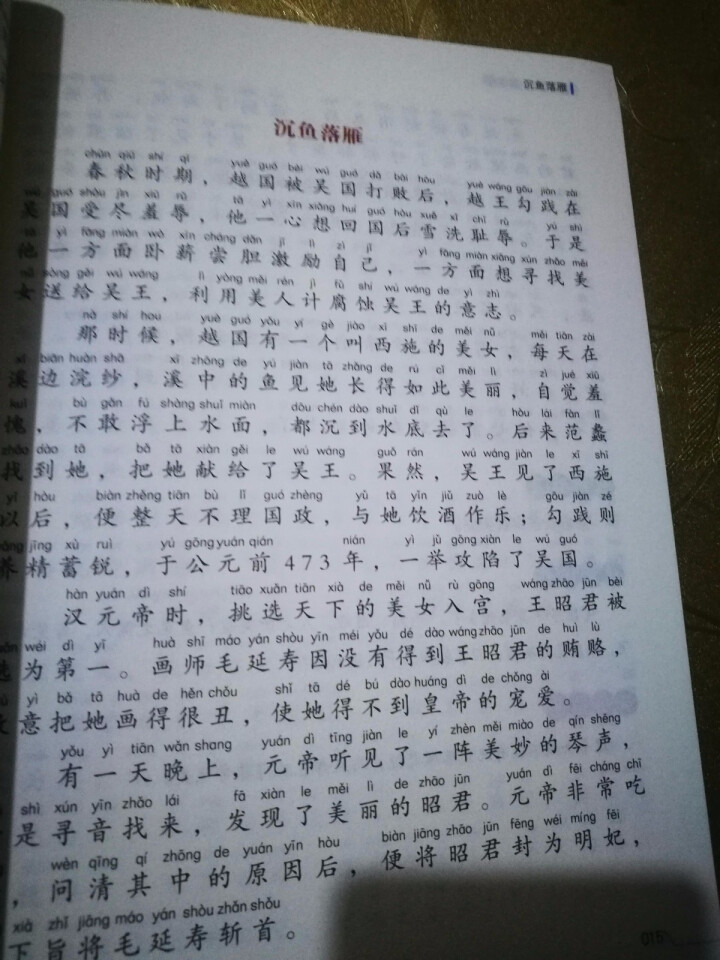 沉鱼落雁
沉鱼落雁
chūn qiū shí qī yuè guó bèi wú guó dǎ bài hòu yuè wáng gōu jiàn zài
春秋时期，越国被吴国打败后，越王勾践在
wú guó shòu jìn xiū rǔ tā yì xīn xiǎng huí guó hòu xuě xǐ chǐ rǔ yú shì
吴国受尽羞辱，他一心想回国后雪洗耻辱。于是
tā yì fāng miàn wò xīn cháng dǎn jī lì zì jǐ yì fāng miàn xiǎng xún zhǎo měi
他一方面卧薪尝胆激励自己，一方面想寻找美
nǚ sòng gěi wú wáng lì yòng měi rén jì fǔ shí wú wáng de yì zhì
女送给吴王，利用美人计腐蚀吴王的意志。
nà shí hou yuè guó yǒu yí gè jiào xī shī de měi nǚ měi tiān zài
那时候，越国有一个叫西施的美女，每天在
xī biān huàn shā xī zhōng de yú jiàn tā zhǎng de rú cǐ měi lì zì jué xiū
溪边浣纱，溪中的鱼见她长得如此美丽，自觉羞
kuì bù gǎn fú shàng shuǐ miàn dōu chén dào shuǐ dǐ qù le hòu lái fàn lǐ
愧，不敢浮上水面，都沉到水底去了。后来范蠡
zhǎo dào tā bǎ tā xiàn gěi le wú wáng guǒ rán wú wáng jiàn le xī shī
找到她，把她献给了吴王。果然，吴王见了西施
yǐ hòu biàn zhěng tiān bù lǐ guó zhèng yǔ tā yǐn jiǔ zuò lè gōu jiàn zé
以后，便整天不理国政，与她饮酒作乐；勾践则
jīng xù ruì yú gōng yuán qián nián yì jǔ gōng xiàn le wú guó
养精蓄锐，于公元前473年，一举攻陷了吴国。
hàn yuán dì shí tiāo xuǎn tiān xià de měi nǚ rù gōng wáng zhāo jūn bèi
汉元帝时，挑选天下的美女入宫，王昭君被
wéi dì yī huà shī máo yán shòu yīn méi yǒu dé dào wáng zhāo jūn de huì lù
选为第一。画师毛延寿因没有得到王昭君的贿赂，
yì bǎ tā huà de hěn chǒu shǐ tā dé bú dào huáng dì de chǒng ài
意把她画得很丑，使她得不到皇帝的宠爱。
yǒu yì tiān wǎn shang yuán dì tīng jiàn le yí zhèn měi miào de qín shēng
有一天晚上，元帝听见了一阵美妙的琴声，
shì xún yīn zhǎo lái fā xiàn le měi lì de zhāo jūn yuán dì fēi cháng chī
是寻音找来，发现了美丽的昭君。元帝非常吃
wèn qīng qí zhōng de yuán yīn hòu biàn jiāng zhāo jūn fēng wéi míng fēi
，问清其中的原因后，便将昭君封为明妃，
xià zhǐ jiāng máo yán shòu zhǎn shǒu
下旨将毛延寿斩首。
015